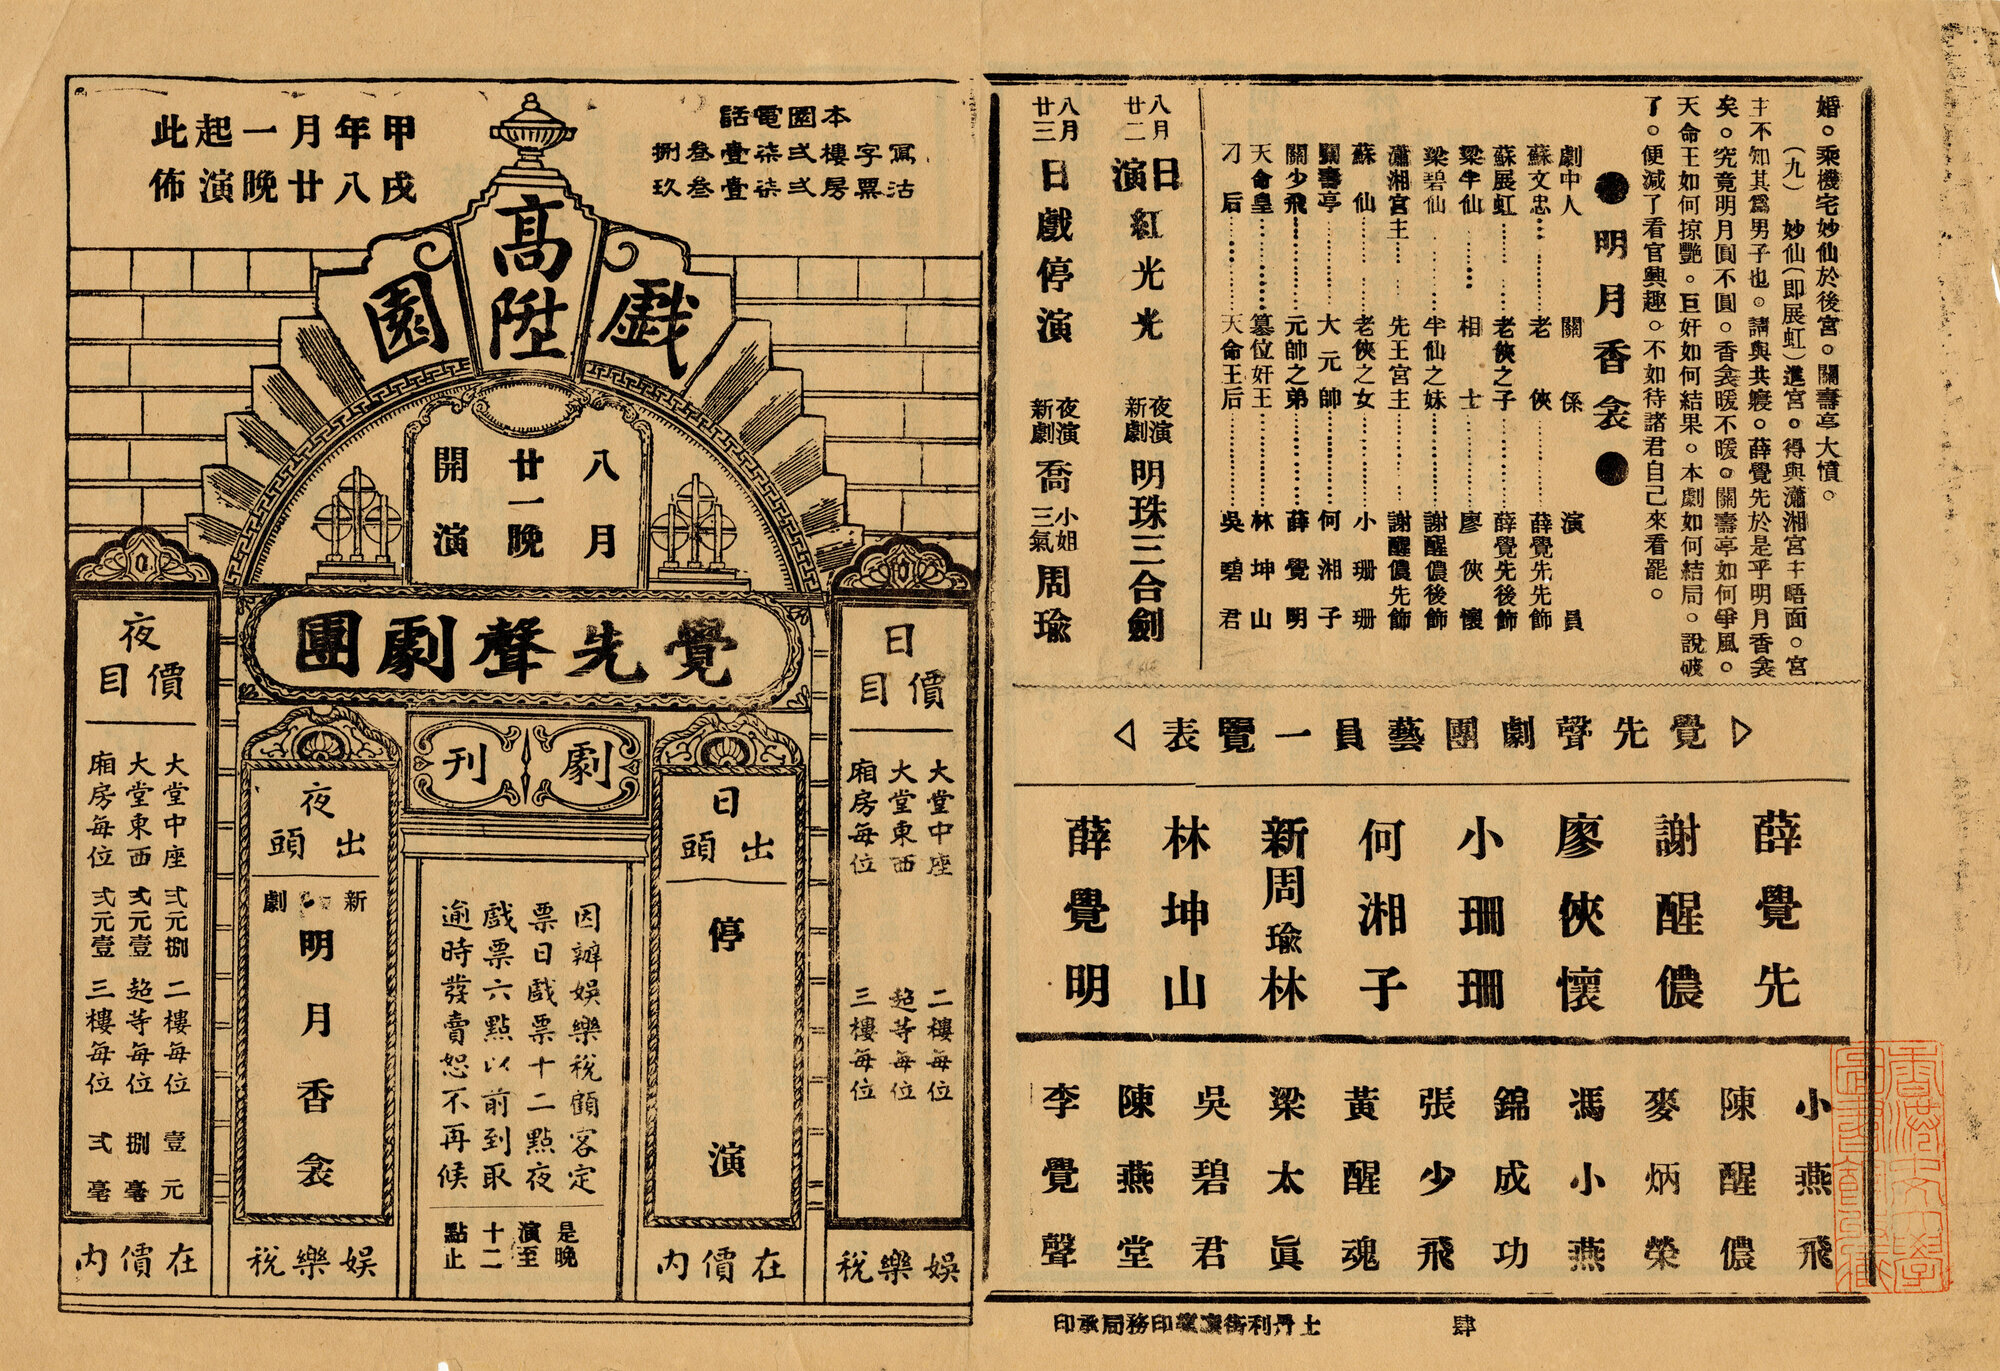 婚。乘機宅妙仙於後宮。關壽亭大憤。
(九)　妙仙(即展虹)進宮。得與瀟湘宮主晤面。宮
主不知其爲男子也。請與共寢。薛覺先於是乎明月香衾
矣。究竟明月圓不圓。香衾暖不暖。關壽亭如何爭風。
天命王如何掠艷。巨奸如何結果。本劇如何結局。說破
了。便減了看官興趣。不如待諸君自己來看罷。
●明月香衾●
劇中人　關係　演員
蘇文忠……老俠……薛覺先先飾
蘇展虹……老俠之子……薛覺先後飾
梁半仙……相士……廖俠懷
梁碧仙……半仙之妹……謝醒儂後飾
瀟湘宮主……先王宮主……謝醒儂先飾
蘇仙……老俠之女……小珊珊
關壽亭……大元帥……何湘子
關少飛……元帥之弟……薛覺明
天命皇……篡位奸王……林坤山
刁后……天命王后……吳碧君
八月廿二日演　紅光光　夜演新劇　明珠三合劍
八月廿三日戲停演　夜演新劇　喬小姐三氣周瑜
覺先聲劇團藝員一覽表
薛覺先
謝醒儂
廖俠懷
小珊珊
何湘子
新周瑜林
林坤山
薛覺明
小燕飛
陳醒儂
麥炳榮
馮小燕
錦成功
張少飛
黃醒魂
梁太眞
吳碧君
陳燕堂
李覺聲
肆
士丹利街廣業印務局承印
本園電話
寫字樓弍柒壹叁捌
沽票房弍柒壹叁玖
甲戌年八月廿一晚起演此佈
高陞戲園
八月廿一晚開演
覺先聲劇團
劇刊
日價目
大堂中座
大堂東西
廂房每位
二樓每位
超等每位
三樓每位
娛樂稅
日出頭
停演
在價內
因辦娛樂稅顧客定
票日戲票十二點夜
戲票六點以前到取
逾時發賣恕不再候
是晚演至十二點止
夜出頭
新劇
明月香衾
娛樂稅
夜價目
大堂中座弍元捌
大堂東西弍元壹
廂房每位弍元壹
二樓每位壹元
超等每位捌毫
三樓每位弍毫
在價內